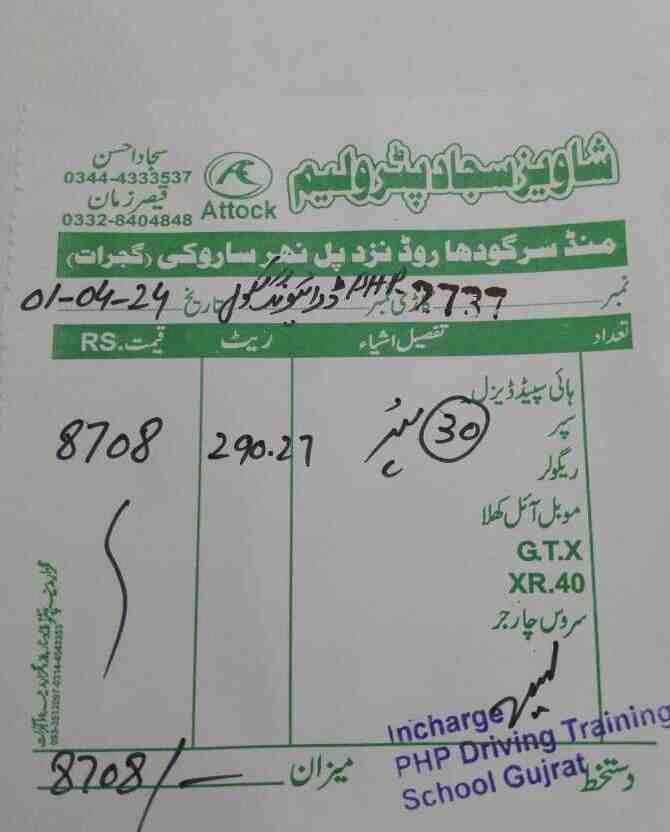 شاویز سجاد پٹرولیم
سجاد احسن
0344-4333537
قیصر زمان
0332-8404848
Attock
منڈ سرگودھا روڈ نزد پل نہر ساروکی (گجرات)
نمبر PHP-2737 گاڑی نمبر ڈرائیونگ سکول تاریخ 01-04-24
تعداد تفصیل اشیاء ریٹ قیمت.RS
ہائی سپیڈ ڈیزل
سپر 30 290.27 8708
ریگولر
موبل آئل کھلا
G.T.X
XR.40
سروس چارجز
Incharge
PHP Driving Training
School Gujrat
دستخط میزان 8708/-